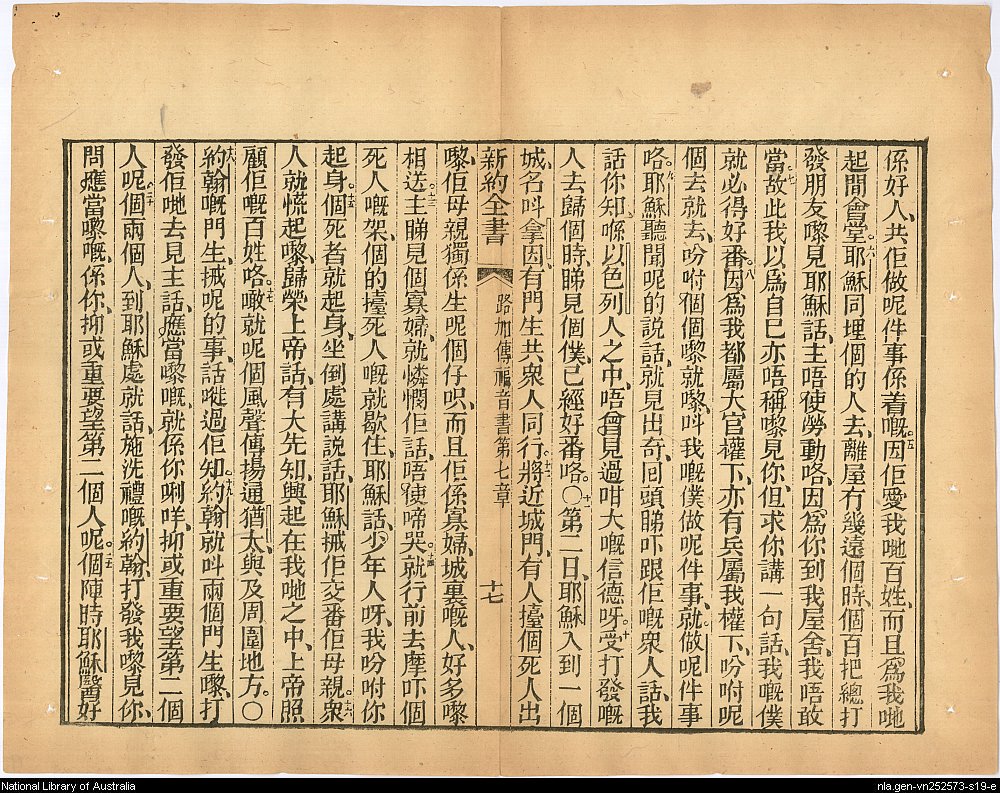 係好人、共佢做呢件事係着嘅、五因佢愛我哋百姓、而且爲我哋
起間會堂。六耶穌同埋個的人去、離屋冇幾遠個時、個百把總打
發朋友嚟見耶穌話、主唔使勞動咯、因爲你到我屋舍、我唔敢
當、七故此我以爲自己亦唔稱嚟見你、但求你講一句話、我嘅僕
就必得好番、八因爲我都屬大官權下、亦有兵屬我權下、吩咐呢
個去就去、吩咐個個嚟就嚟、叫我嘅僕做呢件事、就做呢件事
咯。九耶穌聽聞呢的說話、就見出奇、囘頭睇吓跟佢嘅衆人話、我
話你知、喺以色列人之中、唔曾見過咁大嘅信德呀。十受打發嘅
人去歸個時、睇見個僕、已經好番咯。〇十一第二日、耶穌入到一個
城、名叫拿因、有門生共衆人同行。十二將近城門、有人擡個死人出
新約全書 路加傳福音書第七章 十七
嚟、佢母親獨係生呢個仔呮、而且佢係寡婦、城裏嘅人、好多嚟
相送。十三主睇見個寡婦、就憐憫佢話、唔使啼哭。十四就行前去摩吓個
死人嘅架、個的擡死人嘅就歇住、耶穌話、少年人呀、我吩咐你
起身。十五個死者就起身、坐倒處講說話、耶穌拭佢交番佢母親。十六衆
人就慌起嚟、歸榮上帝話、有大先知、興起在我哋之中、上帝照
顧佢嘅百姓咯。十七噉就呢個風聲傳揚通猶太、與及周圍地方。〇
十八約翰嘅門生、拭呢的事、話嗺過佢知。十九約翰就叫兩個門生嚟、打
發佢哋去見主話、應當嚟嘅、就係你唎咩、抑或重要望第二個
人呢。二十個兩個人、到耶穌處就話、施洗禮嘅約翰、打發我嚟見你、
問應當嚟嘅、係你、抑或重要望第二個人呢。個陣時耶穌醫好